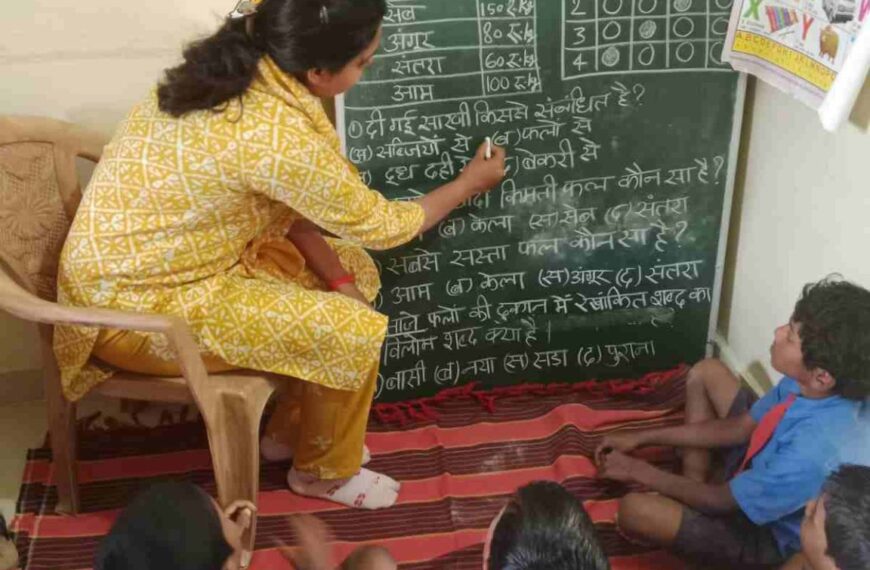 सेब 150 रु.kg
अंगूर 80 रु.kg
संतरा 60 रु.kg
आम 100 रु.kg
2
3
4
① दी गई सारणी किससे संबंधित है?
(अ) सब्जियों से (ब) फलों से
दूध दही बेकरी से
किमती फल कौन सा है?
(ब) केला (स) सेब (द) संतरा
सबसे सस्ता फल कौन सा है?
आम (ब) केला (स) अंगूर (द) संतरा
ताजे फलों की दुकान में रेखांकित शब्द का
विलोम शब्द क्या है।
बासी (ब) नया (स) सडा (द) पुराना
X
Y